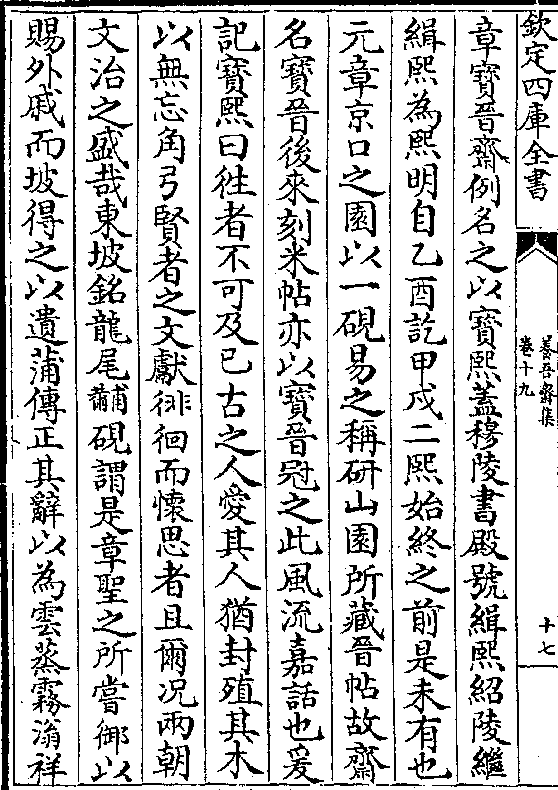 欽定四庫全書
養吾齋集
卷十九
十七
章寶晉齋例名之以寶熙蓋穆陵書殿號緝熙紹陵繼
緝熙為熙明自乙酉訖甲戍二熙始終之前是未有也
元章京口之園以一硯易之稱研山園所藏晉帖故齋
名寶晉後來刻米帖亦以寶晉冠之此風流嘉話也爰
記寶熙曰徃者不可及已古之人愛其人猶封殖其木
以無忘角弓賢者之文獻徘徊而懷思者且爾况兩朝
文治之盛哉東坡銘龍尾黼硯謂是章聖之所嘗御以
賜外戚而坡得之以遺蒲傳正其辭以為雲蒸霧滃祥